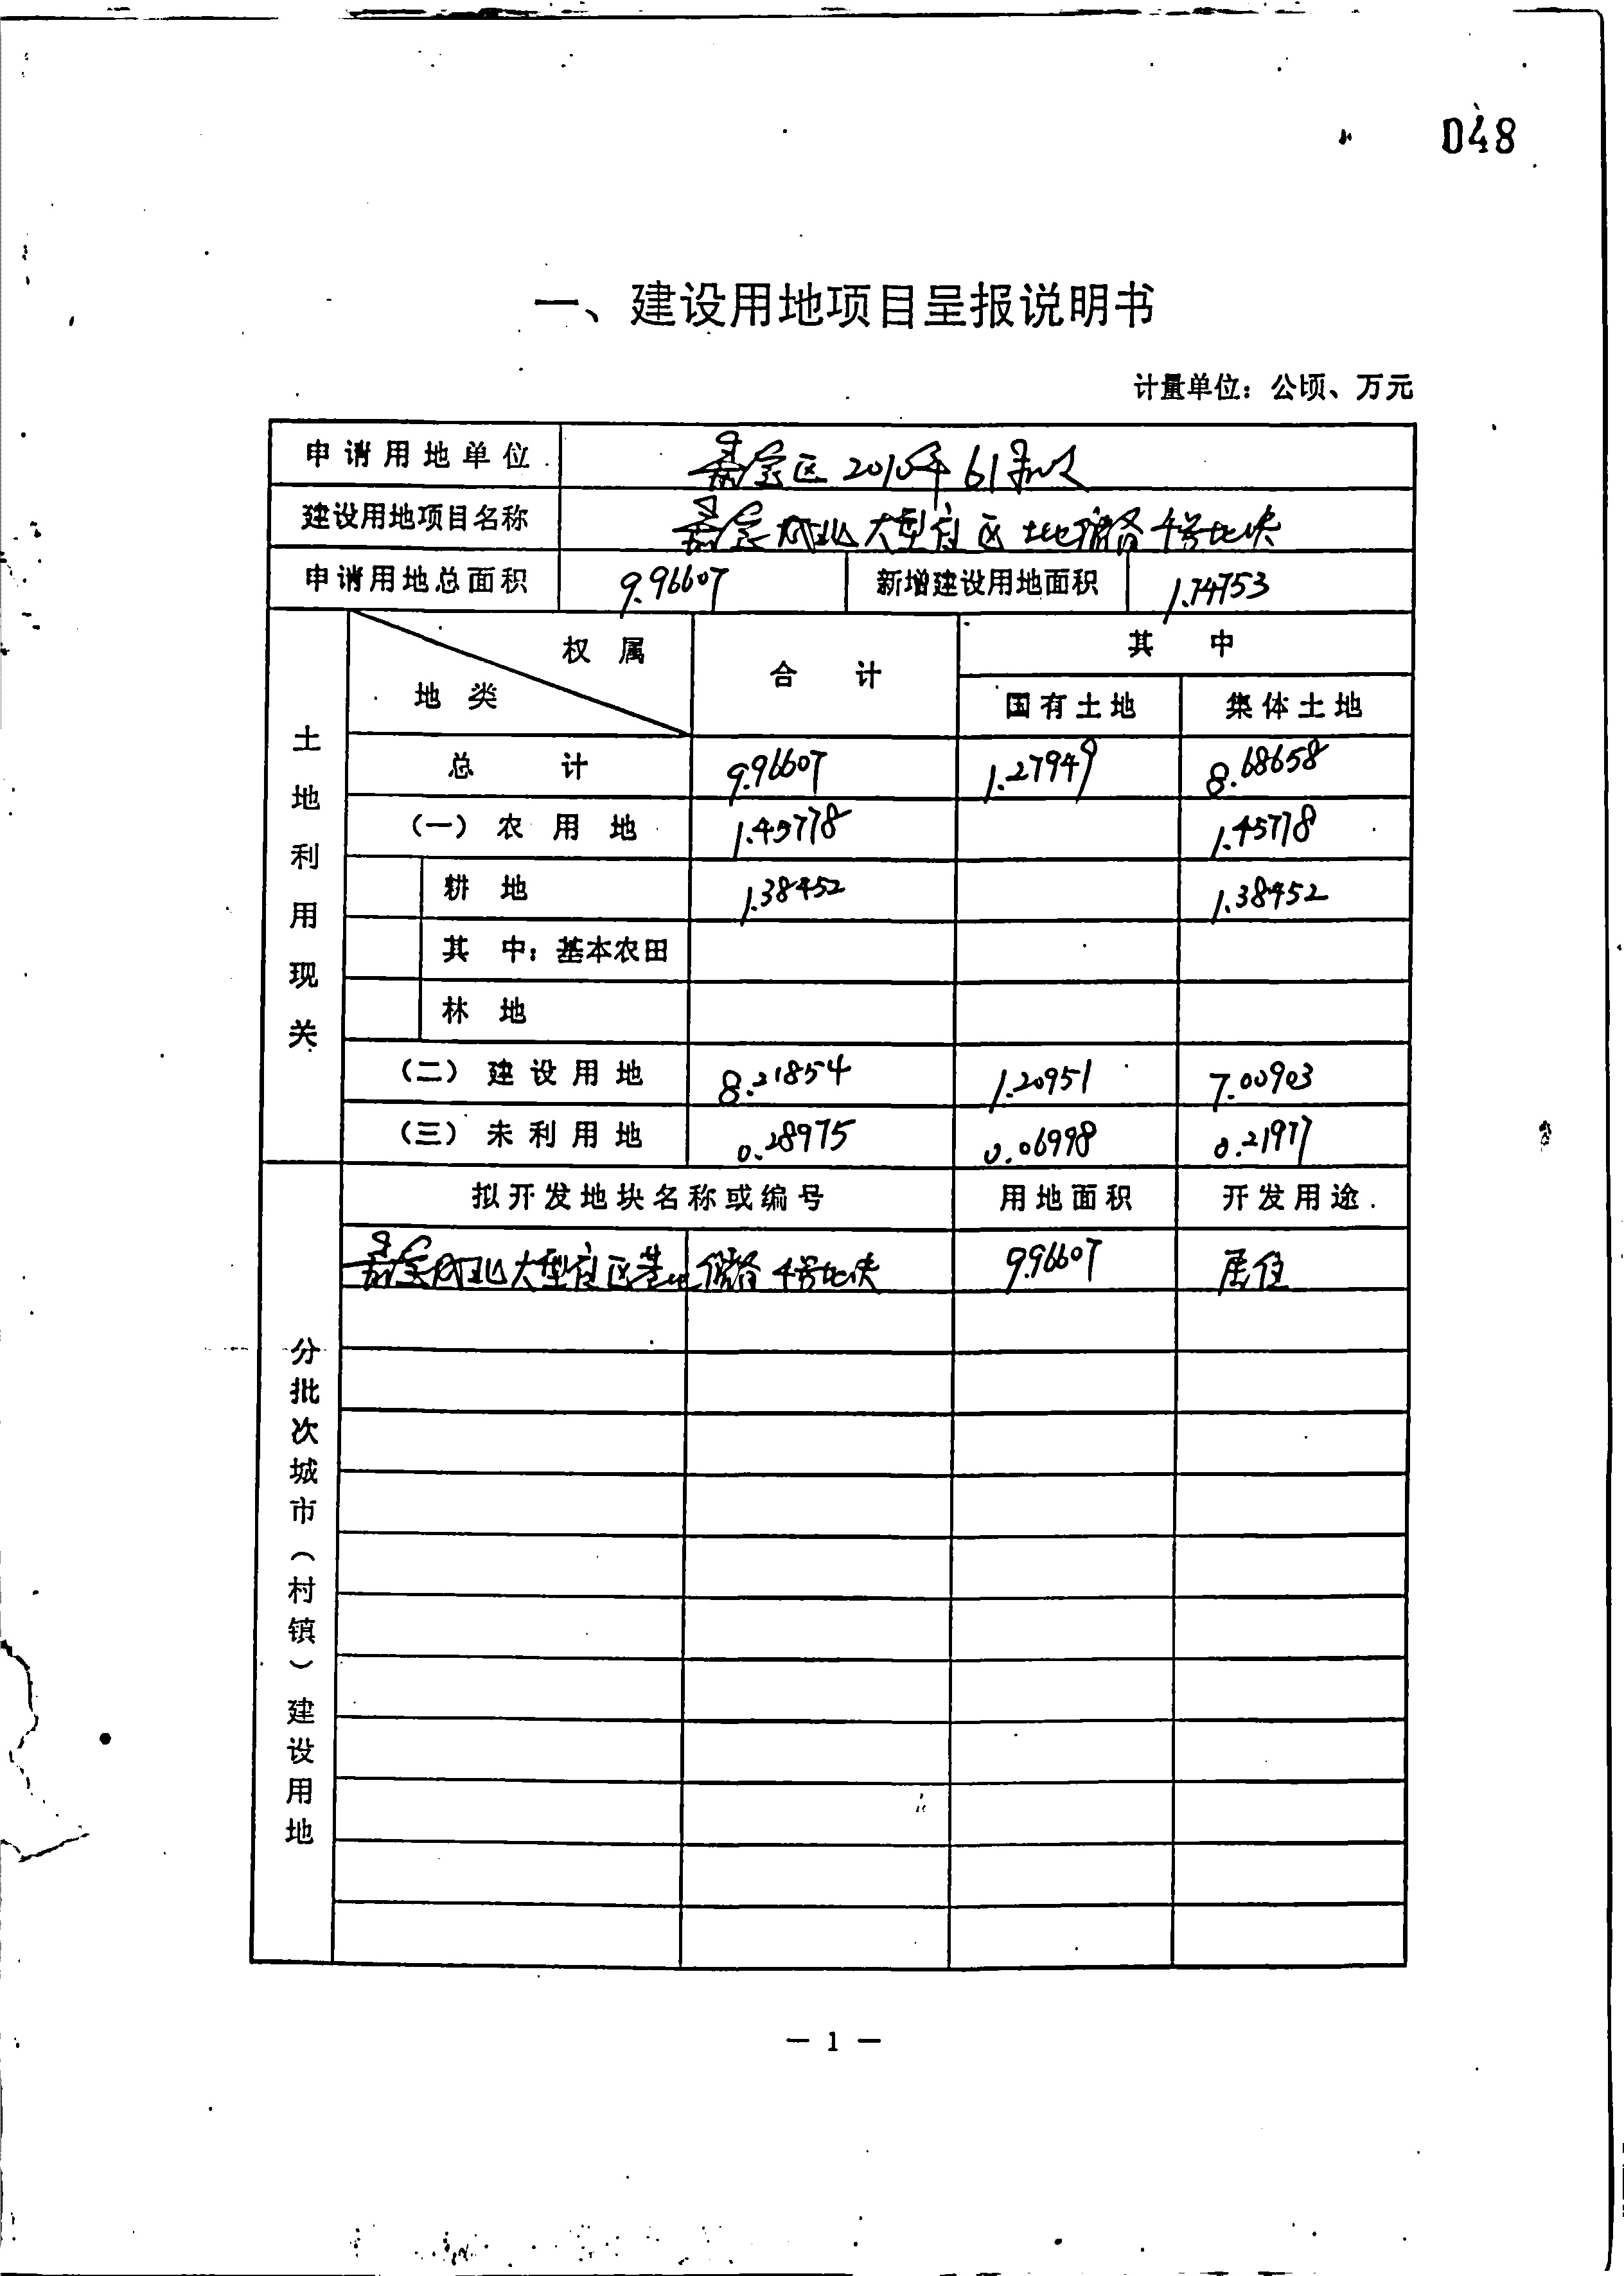 048
一、建设用地项目呈报说明书
计量单位：公顷、万元
申请用地单位 嘉定区2010年61批次
建设用地项目名称 嘉定城北大型居住区基地储备4号地块
申请用地总面积 9.96607 新增建设用地面积 1.74753
土地利用现关
权属 地类 合计 其中
国有土地 集体土地
总计 9.96607 1.27949 8.68658
（一）农用地 1.45778 1.45778
耕地 1.38452 1.38452
其中：基本农田
林地
（二）建设用地 8.21854 1.20951 7.00903
（三）未利用地 0.28975 0.06998 0.21977
分批次城市（村镇）建设用地
拟开发地块名称或编号 用地面积 开发用途
嘉定城北大型居住区基地储备4号地块 9.96607 居住
— 1 —